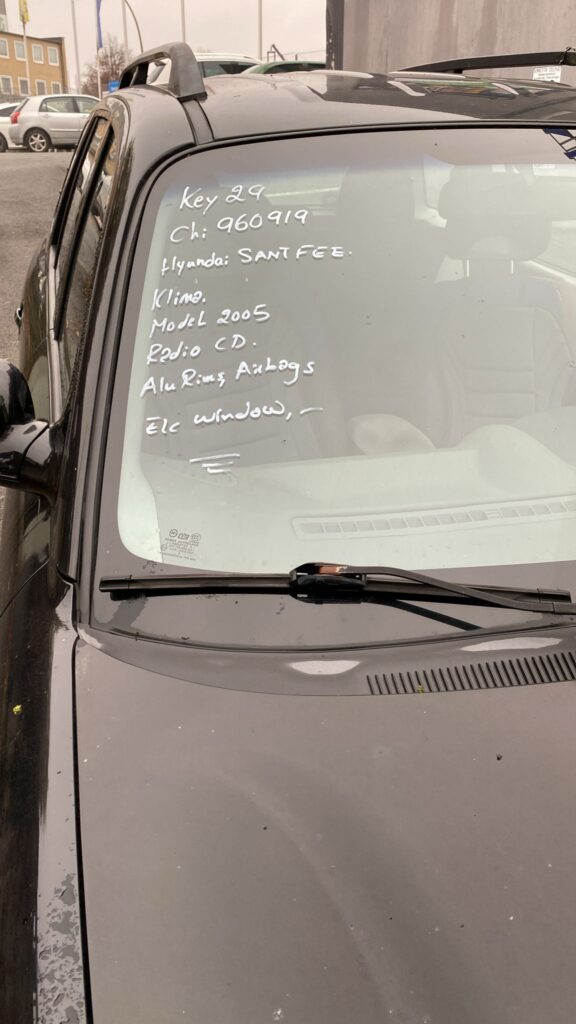 Key 29
Ch: 960919
Hyundai SANTFEE.
Klima.
Model 2005
Radio CD.
Alu Rims Airbags
Elc window,